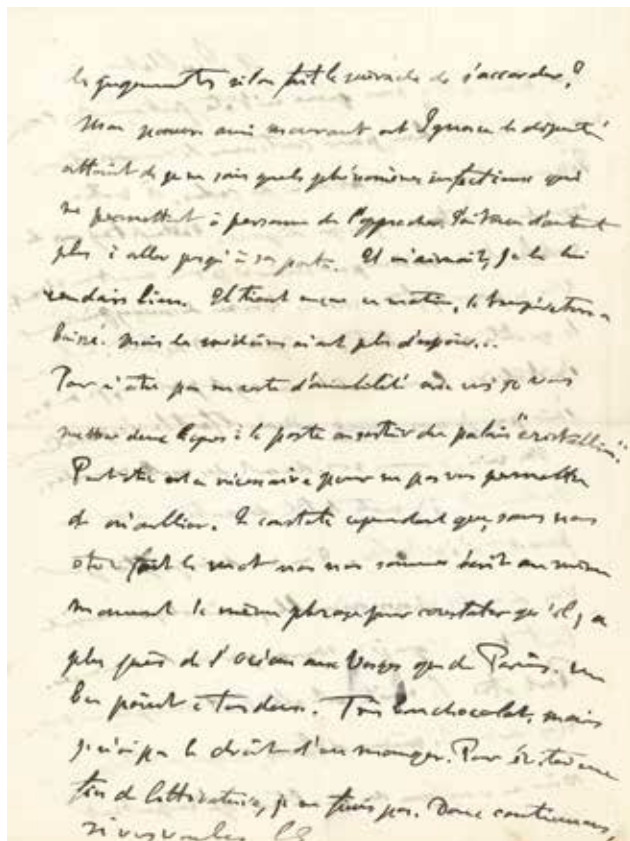 les qu si l'on fait le miracle de s'accorder ?
Mon pauvre ami mourant est Ignace le député
atteint de je ne sais quels phénomènes infectieux qui
ne permettent à personne de l'approcher. d'autant
plus à aller jusqu'à sa porte. Il m'aimait, je le lui
rendais bien. Il tient encore ce matin, la température a
baissé. Mais les médecins n'ont plus d'espoir...
Pour n'être pas en reste d'amabilité avec vous je vous
mettrai deux lignes à la poste au sortir du palais "cristallin".
Peut-être est-ce nécessaire pour ne pas vous permettre
de m'oublier. Je constate cependant que, sans nous
être fait le mot nous nous sommes écrit au même
moment la même phrase pour constater qu'il y a
plus près de l'océan aux Vosges que de Paris. Un
bon point à tous deux. Très bon chocolat, mais
je n'ai pas le droit d'en manger. Pour
fin de littérature, je ne finis pas. Donc continuons,
si vous voulez